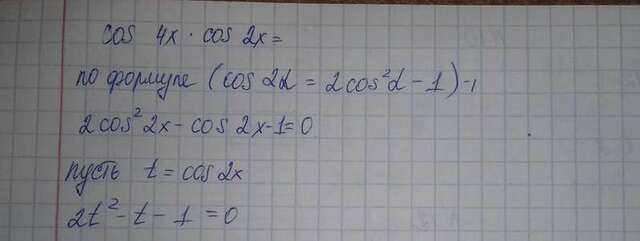 cos 4x · cos 2x =
по формуле (cos 2α = 2cos²α - 1) -1
2cos² 2x - cos 2x - 1 = 0
пусть t = cos 2x
2t² - t - 1 = 0